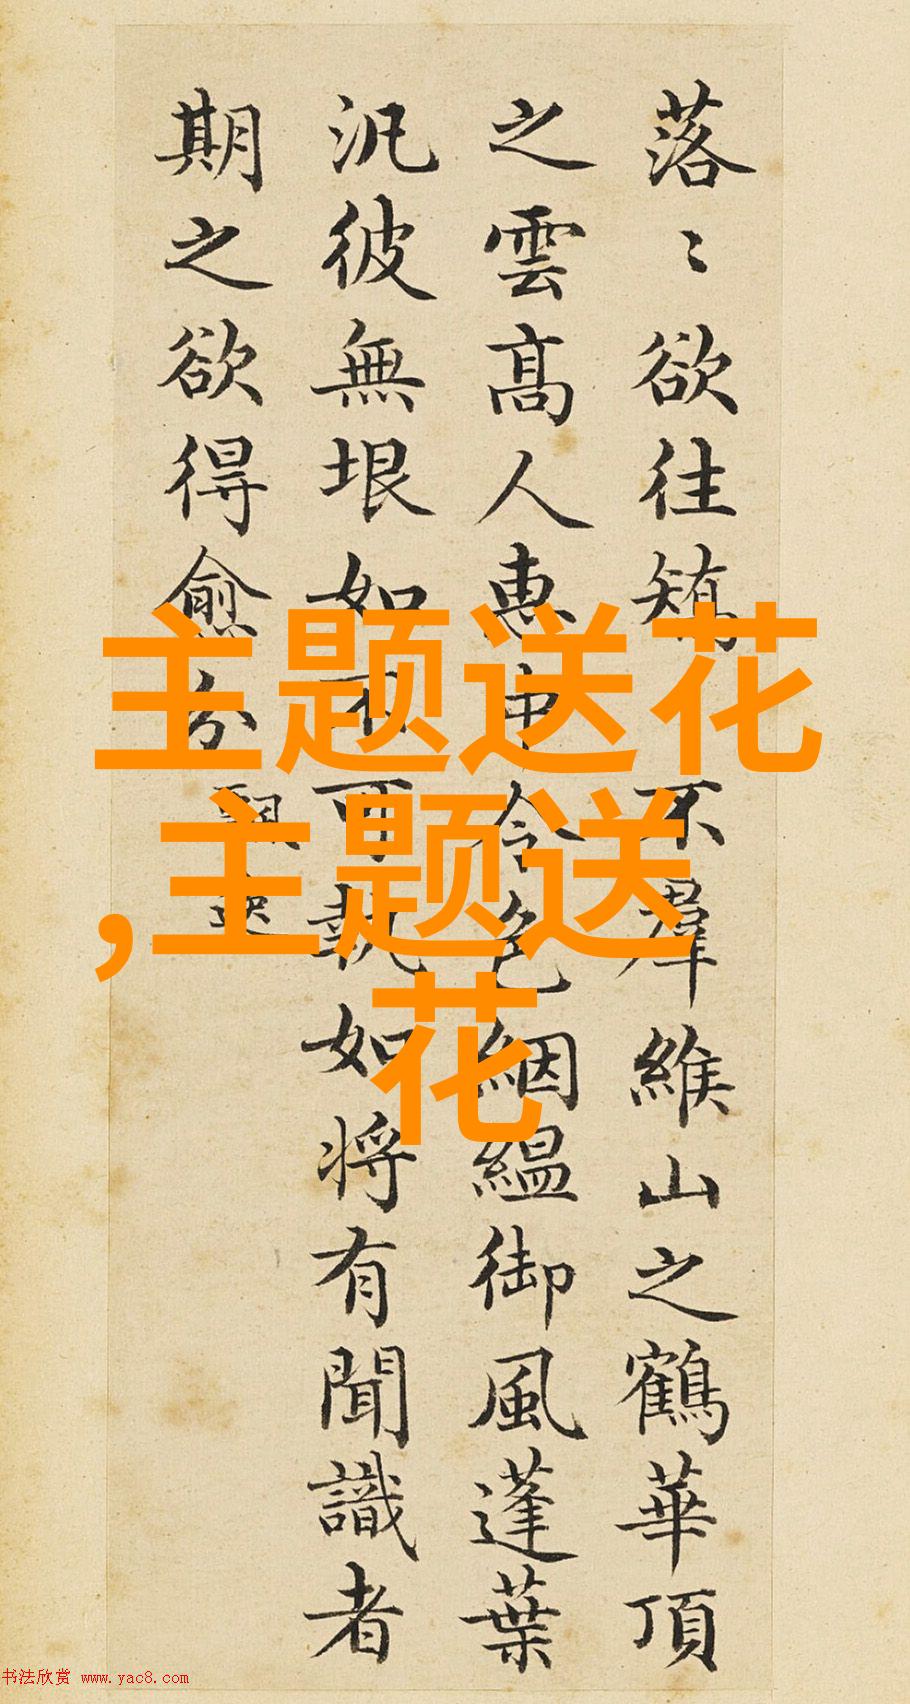 落〻欲往矯〻不羣緱山之鶴華頂
之雲高人惠中令色絪縕御風蓬葉
汎彼無垠如不可執如将有聞識者
期之欲得愈分
主题送花
,主题送
花
书法欣赏 www.yac8.com